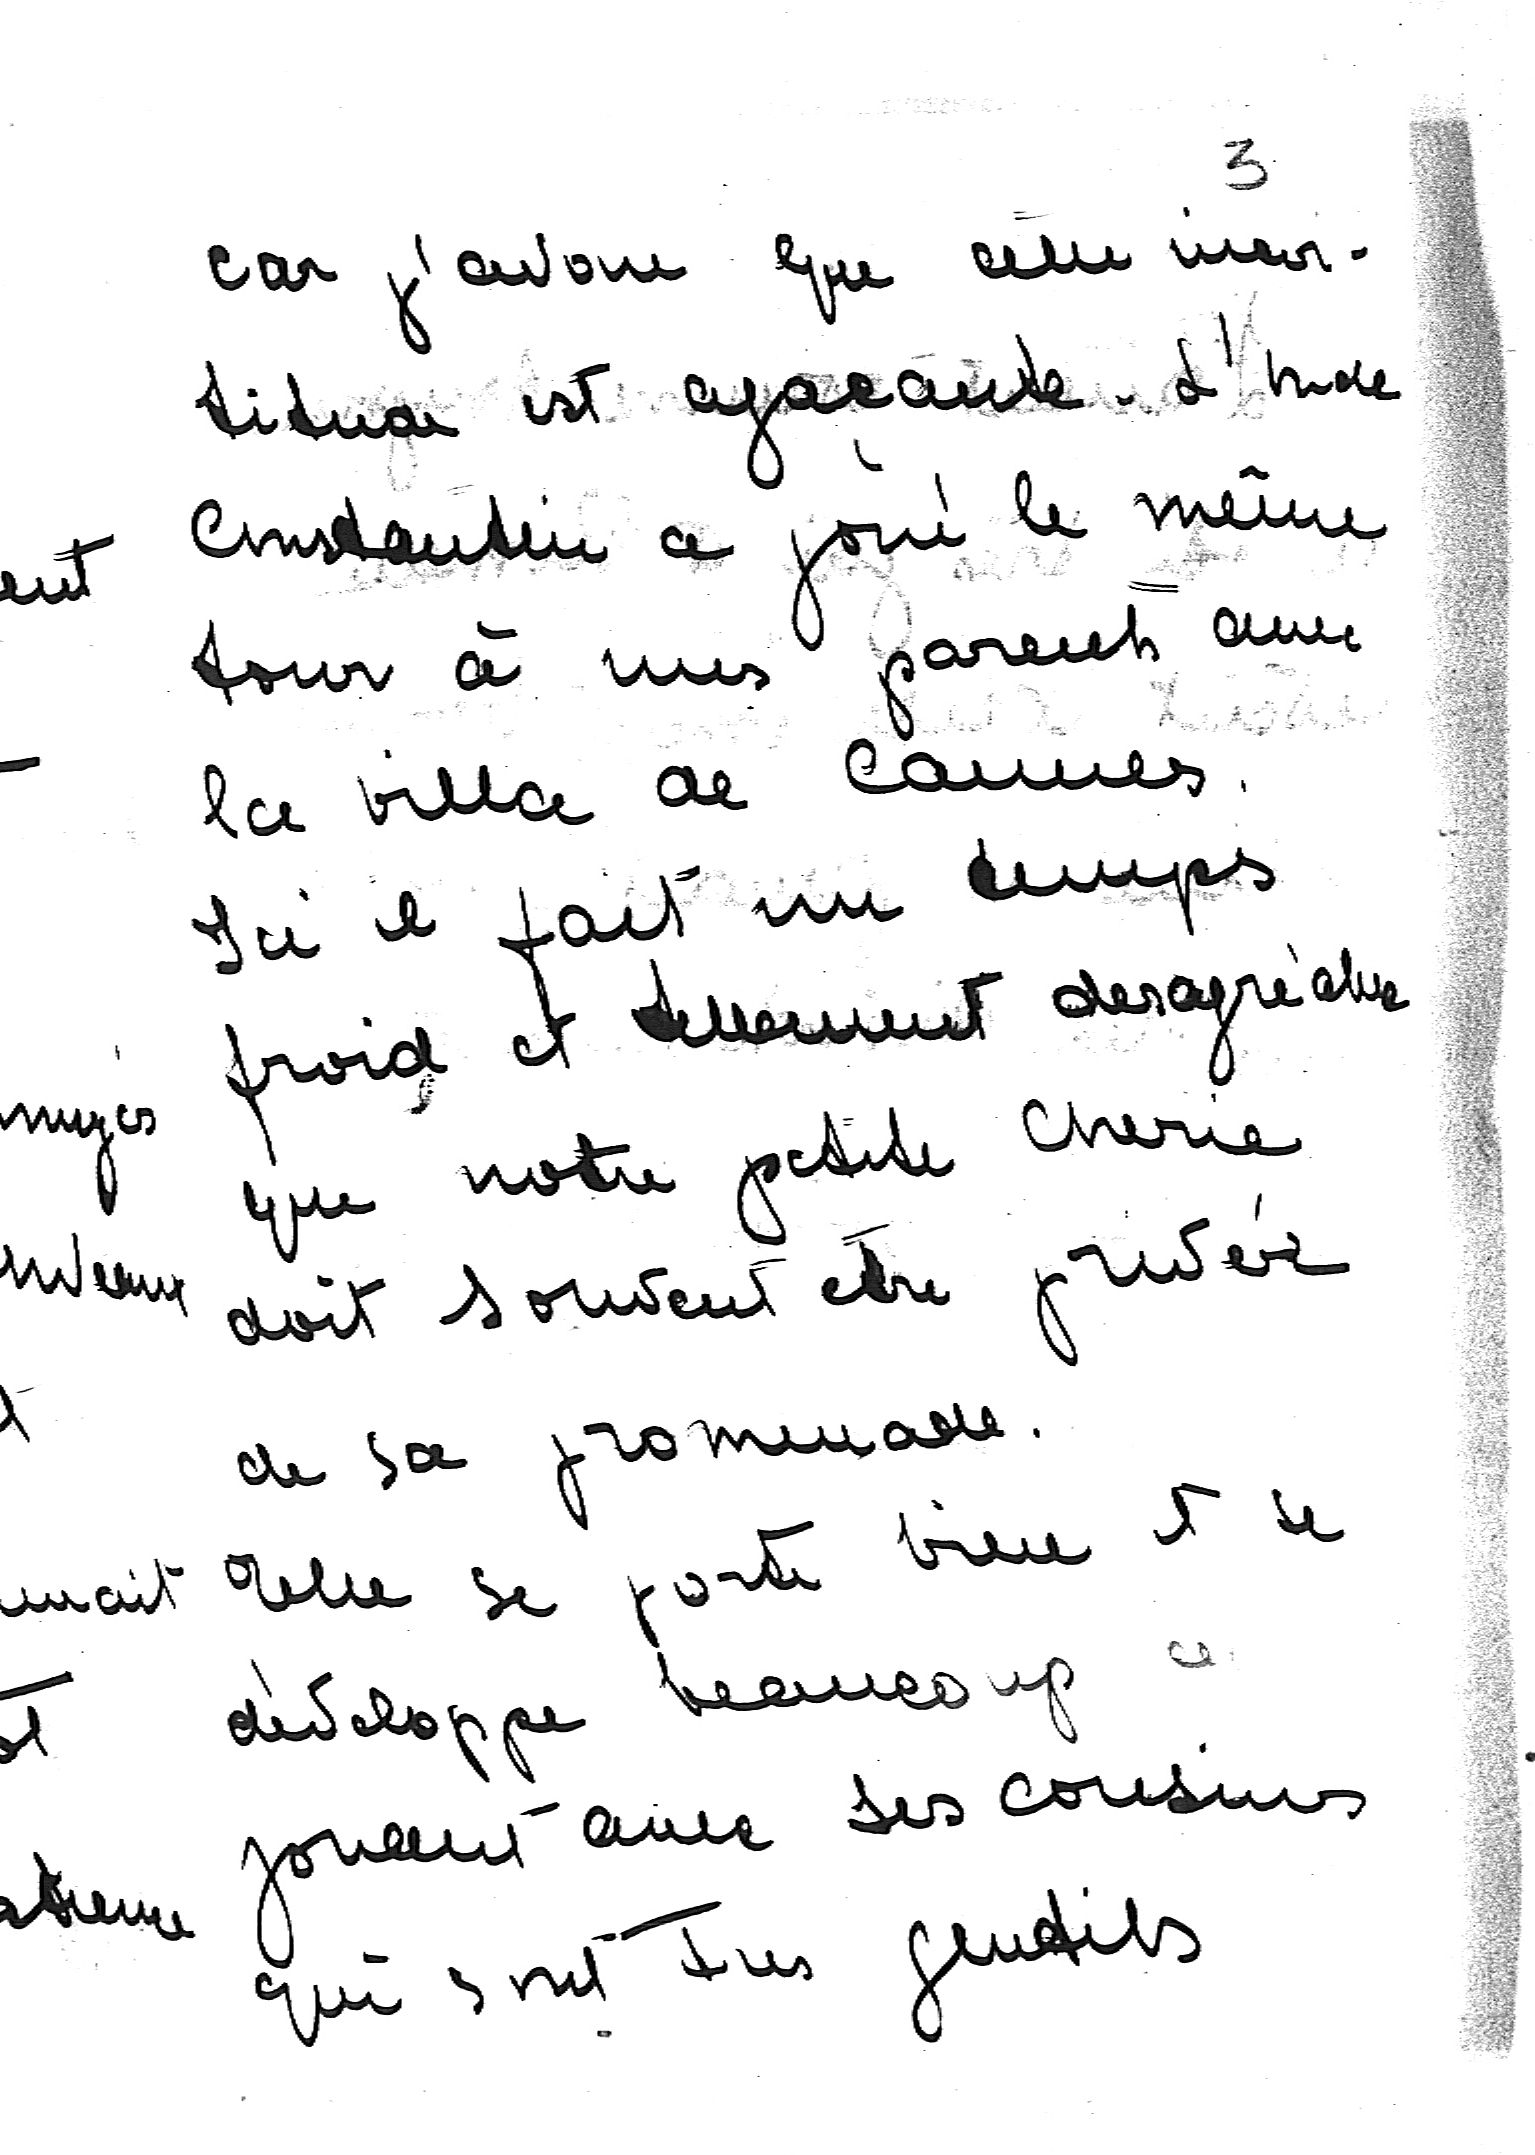 3
car j'avoue que cette incer-
titude est agaçante. L'oncle
ent
Constantin a joué le même
tour à mes parents avec
la villa de Cannes.
Ici il fait un temps
froid et tellement desagréable
que notre petite cherie
doit souvent etre privée
de sa promenade.
Elle se porte bien et se
développe beaucoup
jouant avec ses cousins
qui sont tres gentils